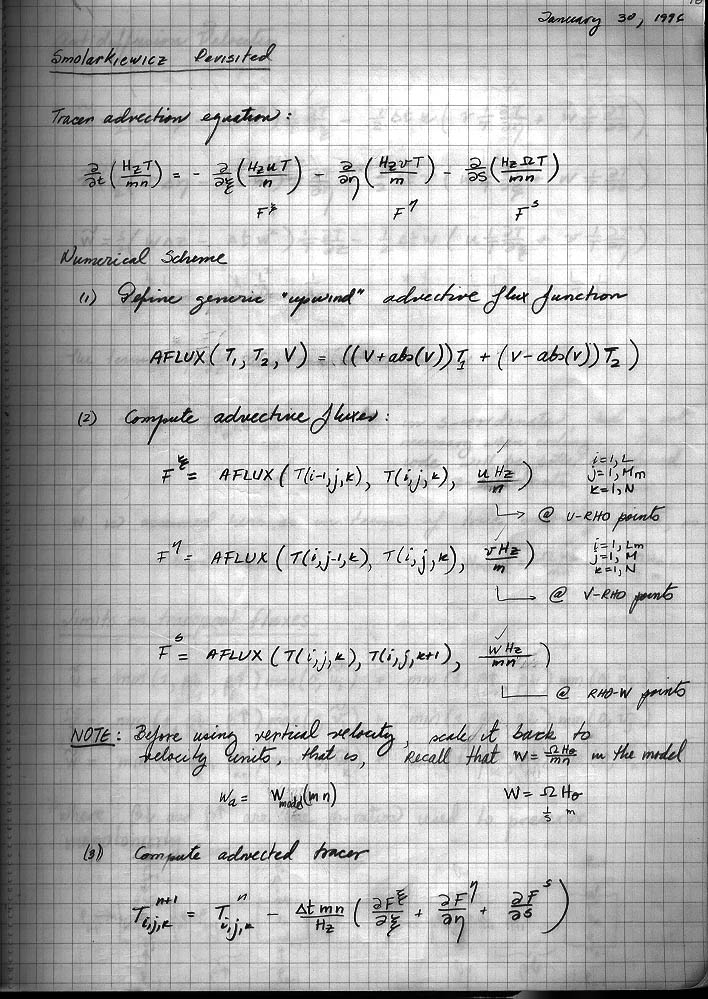 January 30, 1996
Smolarkiewicz Revisited
Tracer advection equation:
∂/∂t (HzT/mn) = - ∂/∂ξ (HzuT/n) - ∂/∂η (HzvT/m) - ∂/∂s (HzΩT/mn)
F^ξ F^η F^s
Numerical Scheme
(1) Define generic "upwind" advective flux function
AFLUX(T₁, T₂, V) = ((V+abs(V))T₁ + (V-abs(V))T₂)
(2) Compute advective fluxes:
F^ξ = AFLUX(T(i-1,j,k), T(i,j,k), uHz/n) i=1,L
j=1,Mm
k=1,N
@ U-RHO points
F^η = AFLUX(T(i,j-1,k), T(i,j,k), vHz/m) i=1,Lm
j=1,M
k=1,N
@ V-RHO points
F^s = AFLUX(T(i,j,k), T(i,j,k+1), wHz/mn)
@ RHO-W points
NOTE: Before using vertical velocity, scale it back to
velocity units, that is, recall that W = ΩHθ/mn in the model
Wa = Wmodel(mn) W = ΩHθ
1/s m
(3) Compute advected tracer
T^{n+1}_{i,j,k} = T^n_{i,j,k} - Δt mn/Hz (∂F^ξ/∂ξ + ∂F^η/∂η + ∂F^s/∂s)